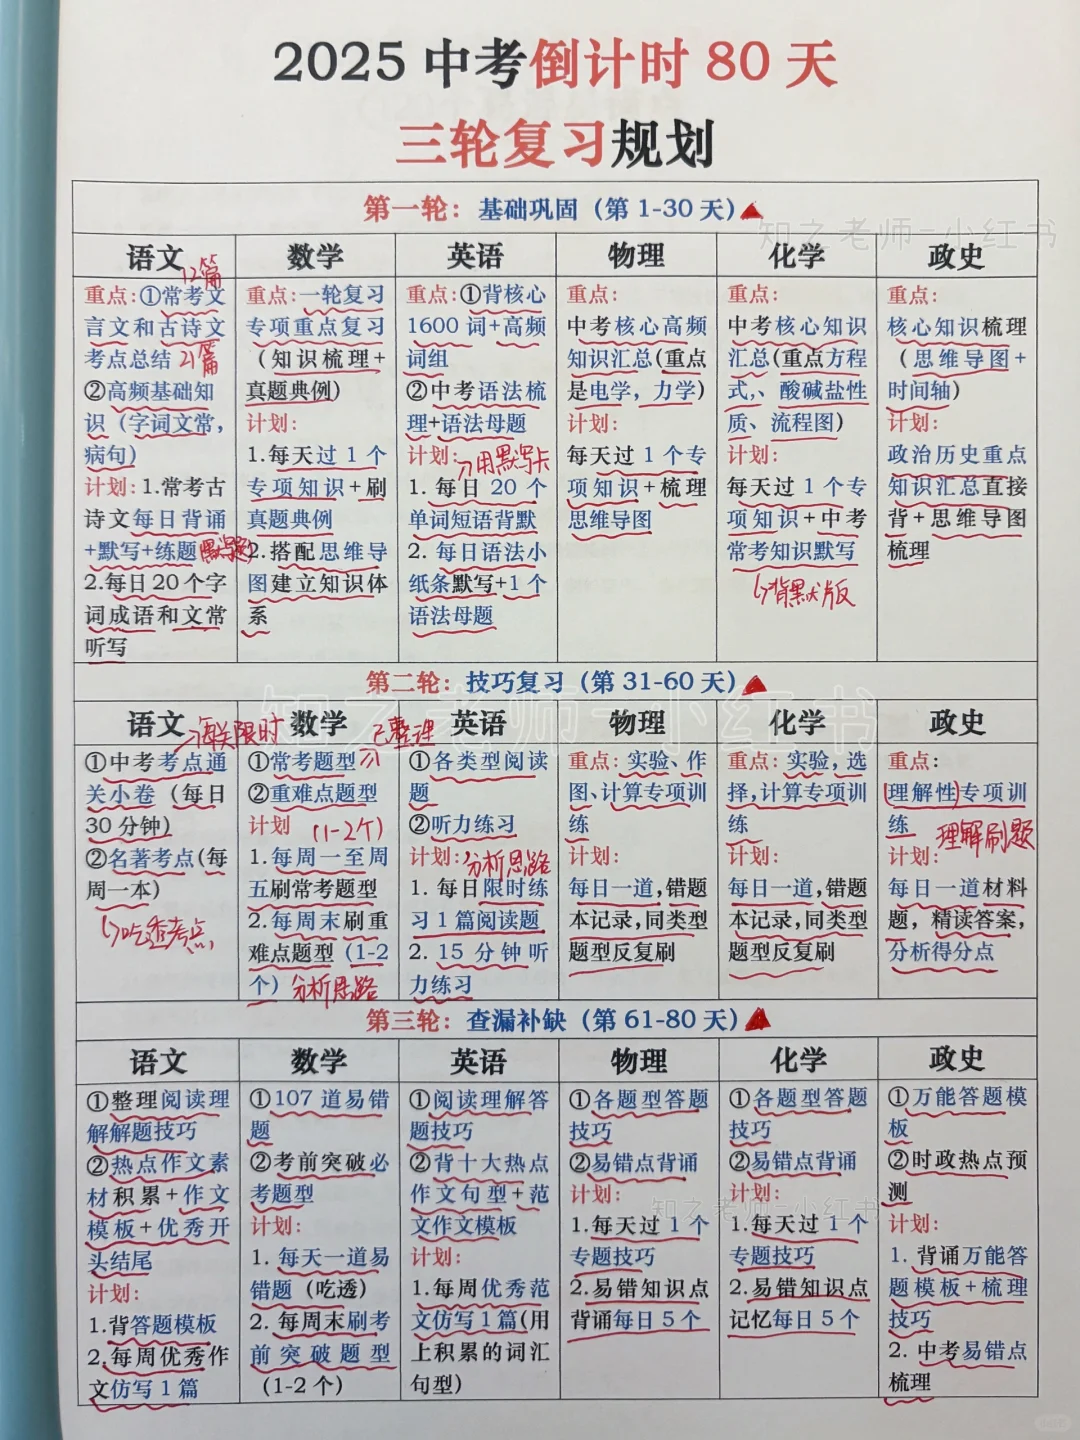 2025 中考倒计时 80 天
三轮复习规划
第一轮：基础巩固（第 1-30 天）
知之老师-小红书
语文
12篇
重点: ①常考文
言文和古诗文
考点总结 21篇
②高频基础知
识（字词文常，
病句）
计划: 1.常考古
诗文每日背诵
+默写+练题 默写题
2.每日20个字
词成语和文常
听写
数学
重点: 一轮复习
专项重点复习
（知识梳理+
真题典例）
计划:
1.每天过 1 个
专项知识+刷
真题典例
2.搭配思维导
图建立知识体
系
英语
重点: ①背核心
1600 词+高频
词组
②中考语法梳
理+语法母题
计划: 用默写卡
1. 每日 20 个
单词短语背默
2. 每日语法小
纸条默写+1 个
语法母题
物理
重点:
中考核心高频
知识汇总(重点
是电学，力学)
计划:
每天过 1 个专
项知识+梳理
思维导图
化学
重点:
中考核心知识
汇总(重点方程
式,、酸碱盐性
质、流程图)
计划:
每天过 1 个专
项知识+中考
常考知识默写
背默状版
政史
重点:
核心知识梳理
（思维导图+
时间轴）
计划:
政治历史重点
知识汇总直接
背+思维导图
梳理
第二轮：技巧复习（第 31-60 天）
知之老师-小红书
语文
每天限时
①中考考点通
关小卷（每日
30 分钟）
②名著考点(每
周一本)
吃透考点
数学
已整理
①常考题型
②重难点题型
计划 (1-2个)
1.每周一至周
五刷常考题型
2.每周末刷重
难点题型（1-2
个） 分析思路
英语
①各类型阅读
题
②听力练习
计划: 分析思路
1. 每日限时练
习 1 篇阅读题
2. 15 分钟听
力练习
物理
重点: 实验、作
图、计算专项训
练
计划:
每日一道,错题
本记录,同类型
题型反复刷
化学
重点: 实验, 选
择,计算专项训
练
计划:
每日一道,错题
本记录,同类型
题型反复刷
政史
重点:
理解性专项训
练 理解刷题
计划:
每日一道材料
题，精读答案，
分析得分点
第三轮：查漏补缺（第 61-80 天）
语文
①整理阅读理
解解题技巧
②热点作文素
材积累+作文
模板+优秀开
头结尾
计划:
1.背答题模板
2.每周优秀作
文仿写 1 篇
数学
①107 道易错
题
②考前突破必
考题型
计划:
1. 每天一道易
错题（吃透）
2. 每周末刷考
前突破题型
（1-2 个）
英语
①阅读理解答
题技巧
②背十大热点
作文句型+范
文作文模板
计划:
1.每周优秀范
文仿写 1 篇(用
上积累的词汇
句型)
物理
①各题型答题
技巧
②易错点背诵
计划:
1.每天过 1 个
专题技巧
2.易错知识点
背诵每日 5 个
化学
①各题型答题
技巧
②易错点背诵
计划:
1.每天过 1 个
专题技巧
2.易错知识点
记忆每日 5 个
知之老师-小红书
政史
①万能答题模
板
②时政热点预
测
计划:
1. 背诵万能答
题模板+梳理
技巧
2. 中考易错点
梳理